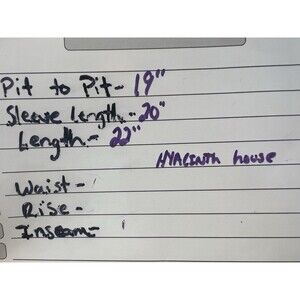 Pit to Pit- 19"
Sleeve Length.-20"
Length.- 22"
HYACINTH house
Waist-
Rise-
Inseam-